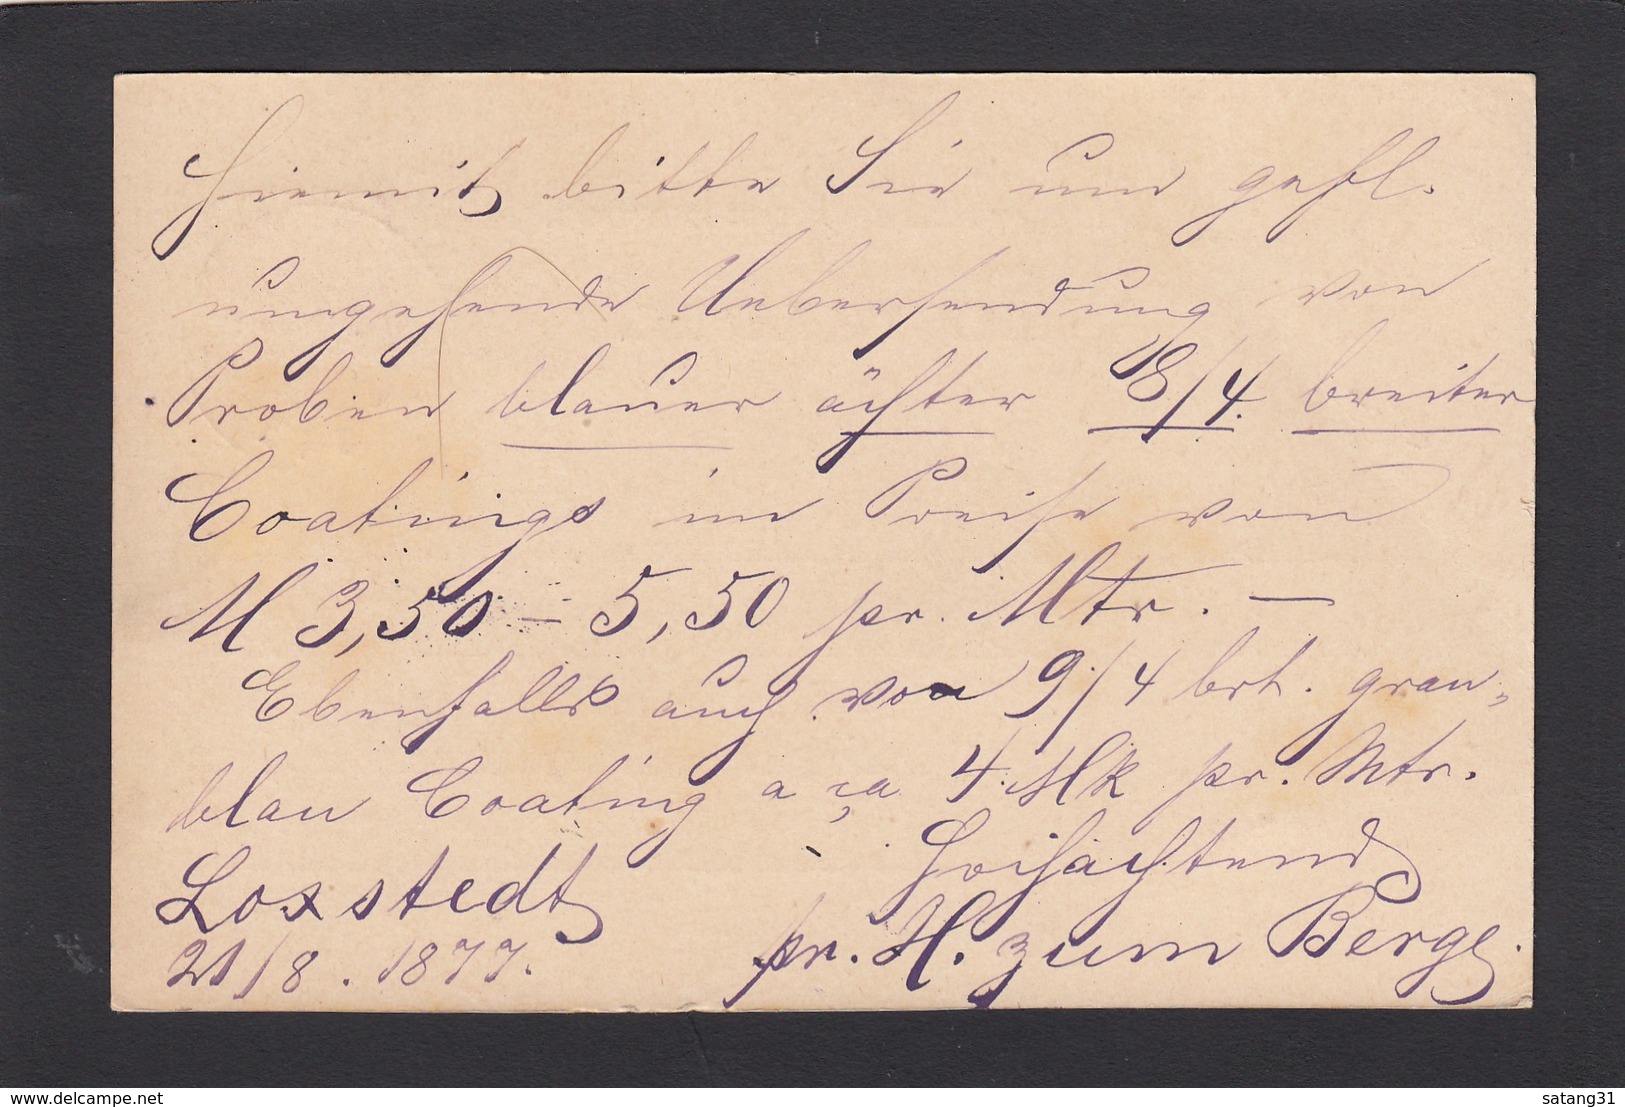 Hiermit bitte Sie um gefl.
umgehende Uebersendung von
Proben blauer ächter 8/4. breiter
Coatings im Preise von
M 3,50 – 5,50 pr. Mtr. –
Ebenfalls auch von 9/4 brt. grau-
blau Coating a ca 4 Mk pr. Mtr.
Hochachtend
Loxstedt
21/8. 1877.
pr. H. zum Berge.
delcampe.net
satang31